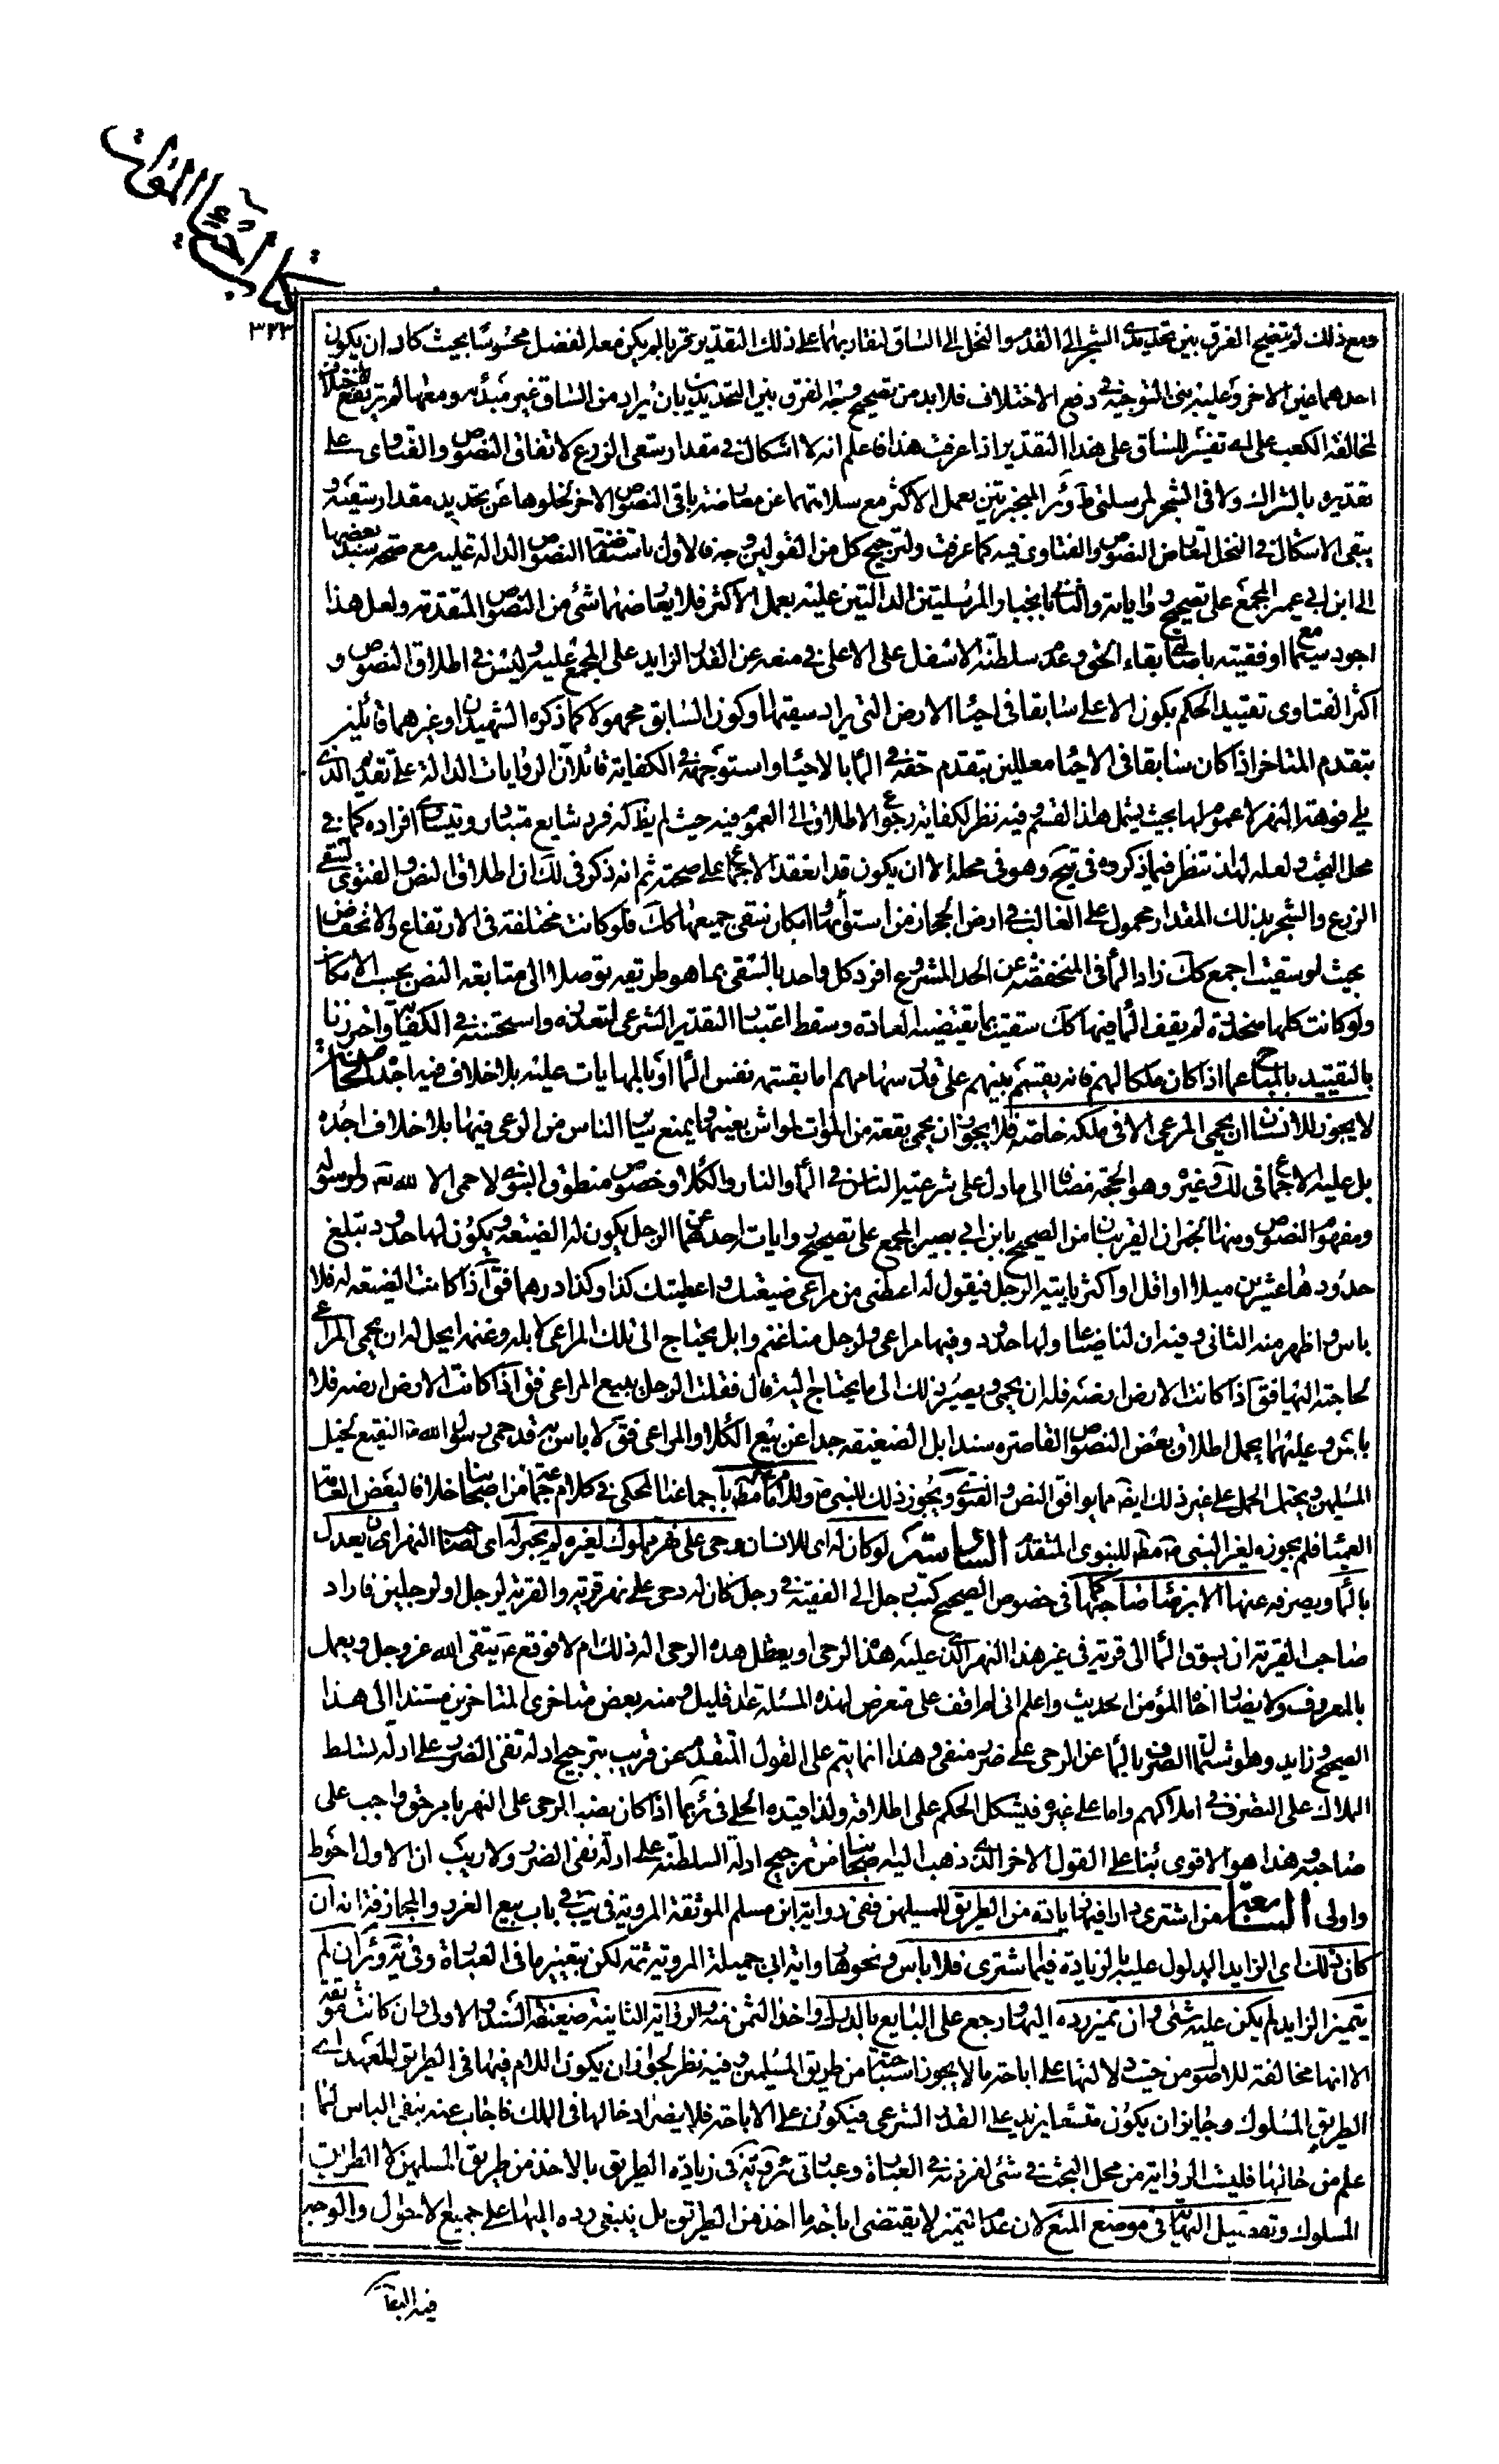 كتاب احياء الموات
٣٢٣
ومع ذلك لم يتضح الفرق بين تحديدى الشجر الى القدم والنخل الى الساق لتقاربهما على ذلك التقدير تقريبا لم يكن معه الفضل محسوسا بحيث كاد ان يكون
احدهما عين الاخر وعليه ينبنى التوجيه فى دفع الاختلاف فلا بد من تصحيح وجه الفرق بين التحديدين بان يراد من الساق غير مبدئه ومعها لم يرتفع الاختلاف
لمخالفة الكعب على اى تفسير للساق على هذا التقدير اذا عرفت هذا فاعلم انه لا اشكال فى مقدار سقى الزرع لاتفاق النصوص والفتاوى على
تقديره بالشراك ولا فى الشجر لمرسلتى ط وئر المنجبرتين بعمل الاكثر مع سلامتهما عن معارضة باقى النصوص الاخر لخلوها عن تحديد مقدار سقيه و
يبقى الاشكال فى النخل لتعارض النصوص والفتاوى فيه كما عرفت ولترجيح كل من القولين وجه فالاول باستفاضة النصوص الدالة عليه مع صحة سند بعضها
الى ابن ابى عمير المجمع على تصحيح رواياته والثانى بانجبار المرسلتين الدالتين عليه بعمل الاكثر فلا يعارضهما شئ من النصوص المتقدمة ولعل هذا
اجود سيما مع اوفقيته باصالة بقاء الحق وعدم سلطنة الاسفل على الاعلى فى منعه عن القدر الزايد على المجمع عليه وليس فى اطلاق النصوص و
اكثر الفتاوى تقييد الحكم بكون الاعلى سابقا فى احياء الارض التى يراد سقيها او كون السابق مجهولا كما ذكره الشهيدان وغيرهما قائلين
بتقدم المتاخر اذا كان سابقا فى الاحياء معللين بتقدم حقه فى الماء بالاحياء واستوجهه فى الكفاية قائلا ان الروايات الدالة على تقدم الذى
يلى فوهة النهر لا عموم لها بحيث يشمل هذا القسم وفيه نظر لكفاية رجوع الاطلاق الى العموم فيه حيث لم يظهر له فرد شايع متبادر وتيساوى افراده كما فى
محل البحث ولعله لهذا تنظر فيما ذكروه فى تيح وهو فى محله الا ان يكون قد انعقد الاجماع على صحته ثم انه ذكر فى لك ان اطلاق النص والفتوى لسقى
الزرع والشجر بذلك المقدار محمول على الغالب فى ارض الحجاز من استوائها وامكان سقى جميعها كك فلو كانت مختلفة فى الارتفاع والانخفاض
بحيث لو سقيت اجمع كك زاد الماء فى المنخفضة عن الحد المشروع افرد كل واحد بالسقى بما هو طريقه توصلا الى متابعة النص بحسب الامكان
ولو كانت كلها منحدرة لم يقف الماء فيها كك سقيت بما يقتضيه العادة وسقط اعتبار التقدير الشرعى لتعذره واستحسنه فى الكفاية واحترزنا
بالتقييد بالمباح عما اذا كان ملكا لهم فانه يقسم بينهم على قدر سهامهم اما بقسمة نفس الماء او بالمهايات عليه بلا خلاف فيه اجده الخامسة
لا يجوز للانسان ان يحمى المرعى الا فى ملكه خاصة فلا يجوز ان يحمى بقعة من الموات لمواش بعينها ويمنع سائر الناس من الرعى فيها بلا خلاف اجده
بل عليه الاجماع فى لك وغيره وهو الحجة مضافا الى ما دل على شرعية الناس فى الماء والنار والكلاء وخصوص منطوق النبوى لا حمى الا لله تعالى ولرسوله
ومفهوم النصوص ومنها الخبران القريبان من الصحيح بابن ابى بصير المجمع على تصحيح رواياته احدهما عن الرجل يكون له الضيعة ويكون لها حدود تبلغ
حدودها عشرين ميلا او اقل او اكثر ياتيه الرجل فيقول له اعطنى من مراعى ضيعتك واعطيتك كذا وكذا درهما فق اذا كانت الضيعة له فلا
باس واظهر منه الثانى وفيه ان لنا ضياعا ولها حدود وفيها مراعى ولرجل منا غنم وابل يحتاج الى تلك المراعى لابله وغنمه ايحل له ان يحمى المراعى
لحاجته اليها فق اذا كانت الارض ارضه فله ان يحمى ويصير ذلك الى ما يحتاج اليه قال فقلت الرجل يبيع المراعى فق اذا كانت الارض ارضه فلا
باس وعليهما يحمل اطلاق بعض النصوص القاصرة سندا بل الضعيفة جدا عن بيع الكلاء والمراعى فق لا باس به قد حمى رسول الله ص النقيع لخيل
المسلمين ويحتمل الحمل على غير ذلك ايضا مما يوافق النص والفتوى ويجوز ذلك للنبى ص وللامام مطلقا باجماعنا المحكى فى كلام جماعة من اصحابنا خلافا لبعض العامة
العمياء فلم يجوزه لغير النبى ص مطلقا للنبوى المتقدم السادسة لو كان له اى للانسان رحى على نهر مملوك لغيره لم يجز له اى لصاحب النهر ان يعدل
بالماء ويصرفه عنها الا برضاء صاحبها كما فى خصوص الصحيح كتب رجل الى الفقيه فى رجل كان له رحى على نهر قرية والقرية لرجل او لرجلين فاراد
صاحب القرية ان يسوق الماء الى قريته فى غير هذا النهر الذى عليه هذا الرحى او يعطل هذه الرحى اله ذلك ام لا فوقع ع يتقى الله عز وجل ويعمل
بالمعروف ولا يضار اخاه المؤمن الحديث واعلم انى لم اقف على متعرض لهذه المسئلة عدا قليل ومنه بعض متاخرى المتاخرين مستندا الى هذا
الصحيح وزايد وهو استلزام الصرف بالماء عن الرحى على ضرر منفى وهذا انما يتم على القول المتقدم عن قريب بترجيح ادلة نفى الضرر على ادلة تسلط
الملاك على التصرف فى املاكهم واما على غيره فيشكل الحكم على اطلاقه ولذا قيده الحلى فى ئر بما اذا كان نصب الرحى على النهر بامر حق واجب على
صاحبه وهذا هو الاقوى بناء على القول الاخر الذى ذهب اليه اصحابنا من ترجيح ادلة السلطنة على ادلة نفى الضرر ولا ريب ان الاول احوط
واولى السابعة من اشترى دارا فيها زيادة من الطريق للمسلمين ففى رواية ابن مسلم الموثقة المروية فى يب فى باب بيع الغرر والمجازفة انه ان
كان ذلك اى الزايد المدلول عليه بالزيادة فيما اشترى فلا باس ونحوها رواية ابى جميلة المروية ثمة لكن بتغيير ما فى العبارة وفى يه وئر ان لم
يتميز الزايد لم يكن عليه شئ وان تميز رده اليها ورجع على البايع بالدرك واخذ الثمن منه والرواية الثانية ضعيفة السند والاولى وان كانت موثقة
الا انها مخالفة للاصول من حيث دلالتها على اباحة ما لا يجوز استباحته من طريق المسلمين وفيه نظر لجواز ان يكون اللام فيها فى الطريق للعهد اى
الطريق المسلوك وجايز ان يكون متسعا يزيد على القدر الشرعى فيكون على الاباحة فلا يضر ادخالها فى الملك فاجاب عنه بنفى الباس لما
علم من خارجها فليست الرواية من محل البحث فى شئ لفرضه فى العبارة وعبارتى ئر ويه فى زيادة الطريق بالاخذ من طريق المسلمين كما الطريق
المسلوك وتفصيل النهاية فى موضع المنع لان عدم التميز لا يقتضى اباحة ما اخذ من الطريق بل ينبغى رده اليها على جميع الاحوال والوجه
فيه البقاء